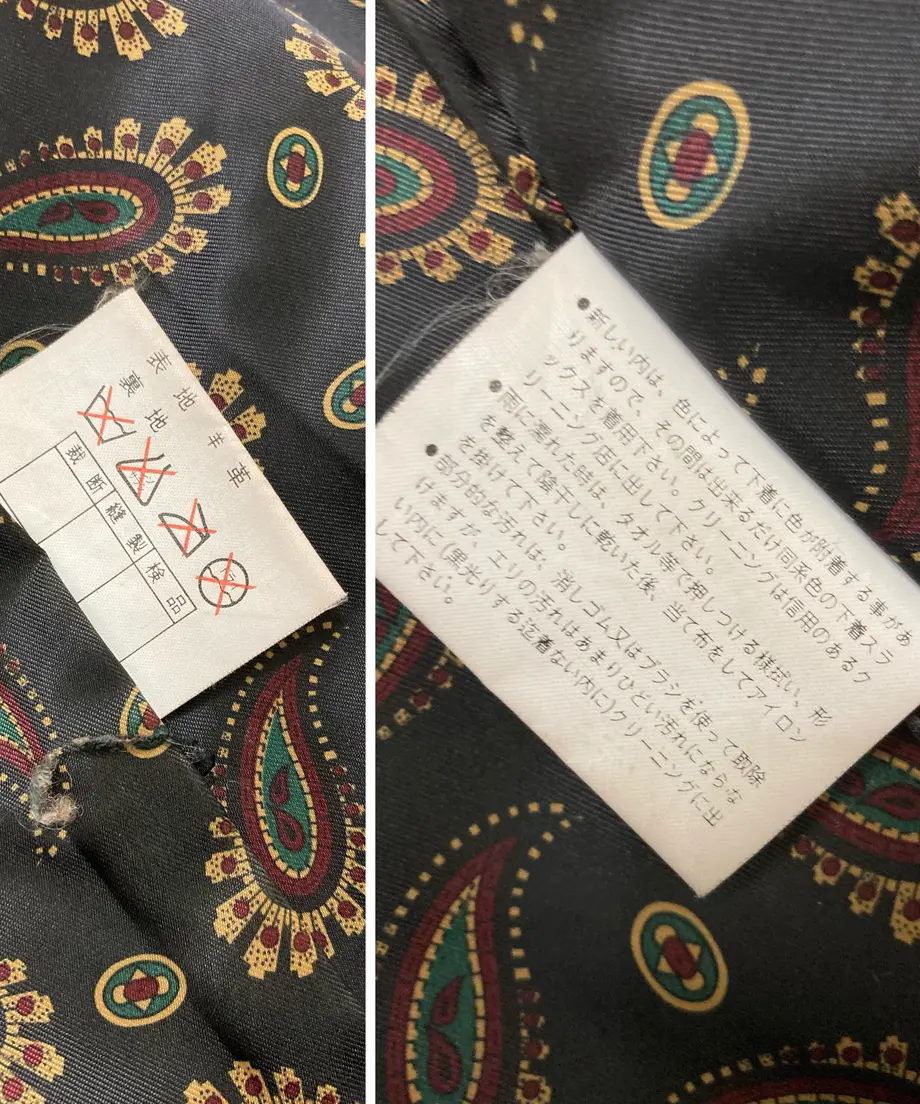 表地 羊革
裏地
裁断
縫製
検品
●新しい内は、色によって下着に色が附着する事があ
りますので、その間は出来るだけ同系色の下着スラ
ックスを着用下さい。クリーニングは信用のあるク
リーニング店に出して下さい。
●雨に濡れた時は、タオル等で押しつける様拭い、形
を整えて陰干しに乾いた後、当て布をしてアイロン
を掛けて下さい。
●部分的な汚れは、消しゴム又はブラシを使って取除
けますが、エリの汚れはあまりひどい汚れにならな
い内に(黒光りする迄着ない内に)クリーニングに出
して下さい。